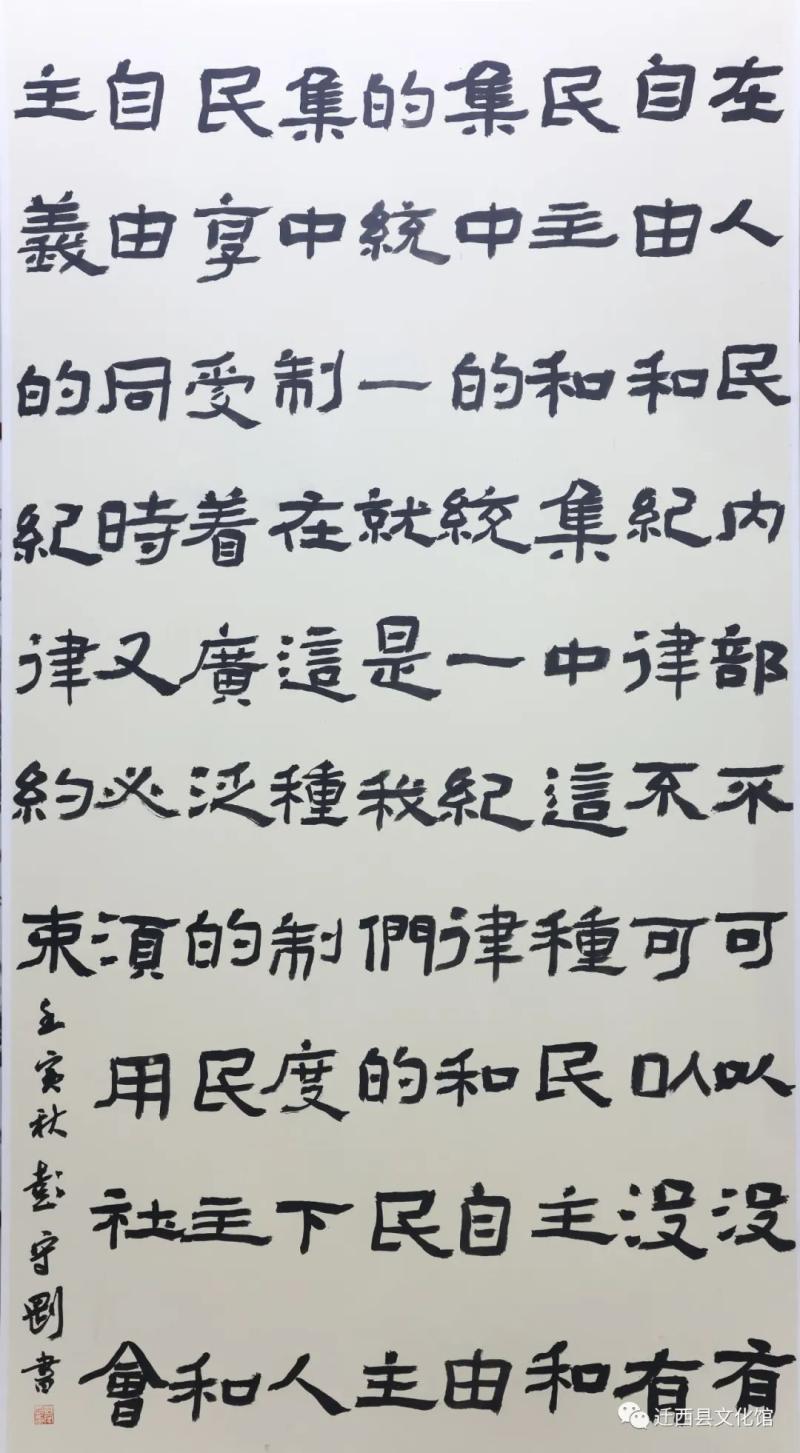 在人民内部不可以没有
自由和紀律不可以没有
民主和集中這種民主和
集中的統一紀律和自由
的統一就是我們的民主
集中制在這種制度下人
民享受着廣泛的民主和
自由同時又必須用社會
主義的紀律約束
壬寅秋彭守剛書
迁西县文化馆